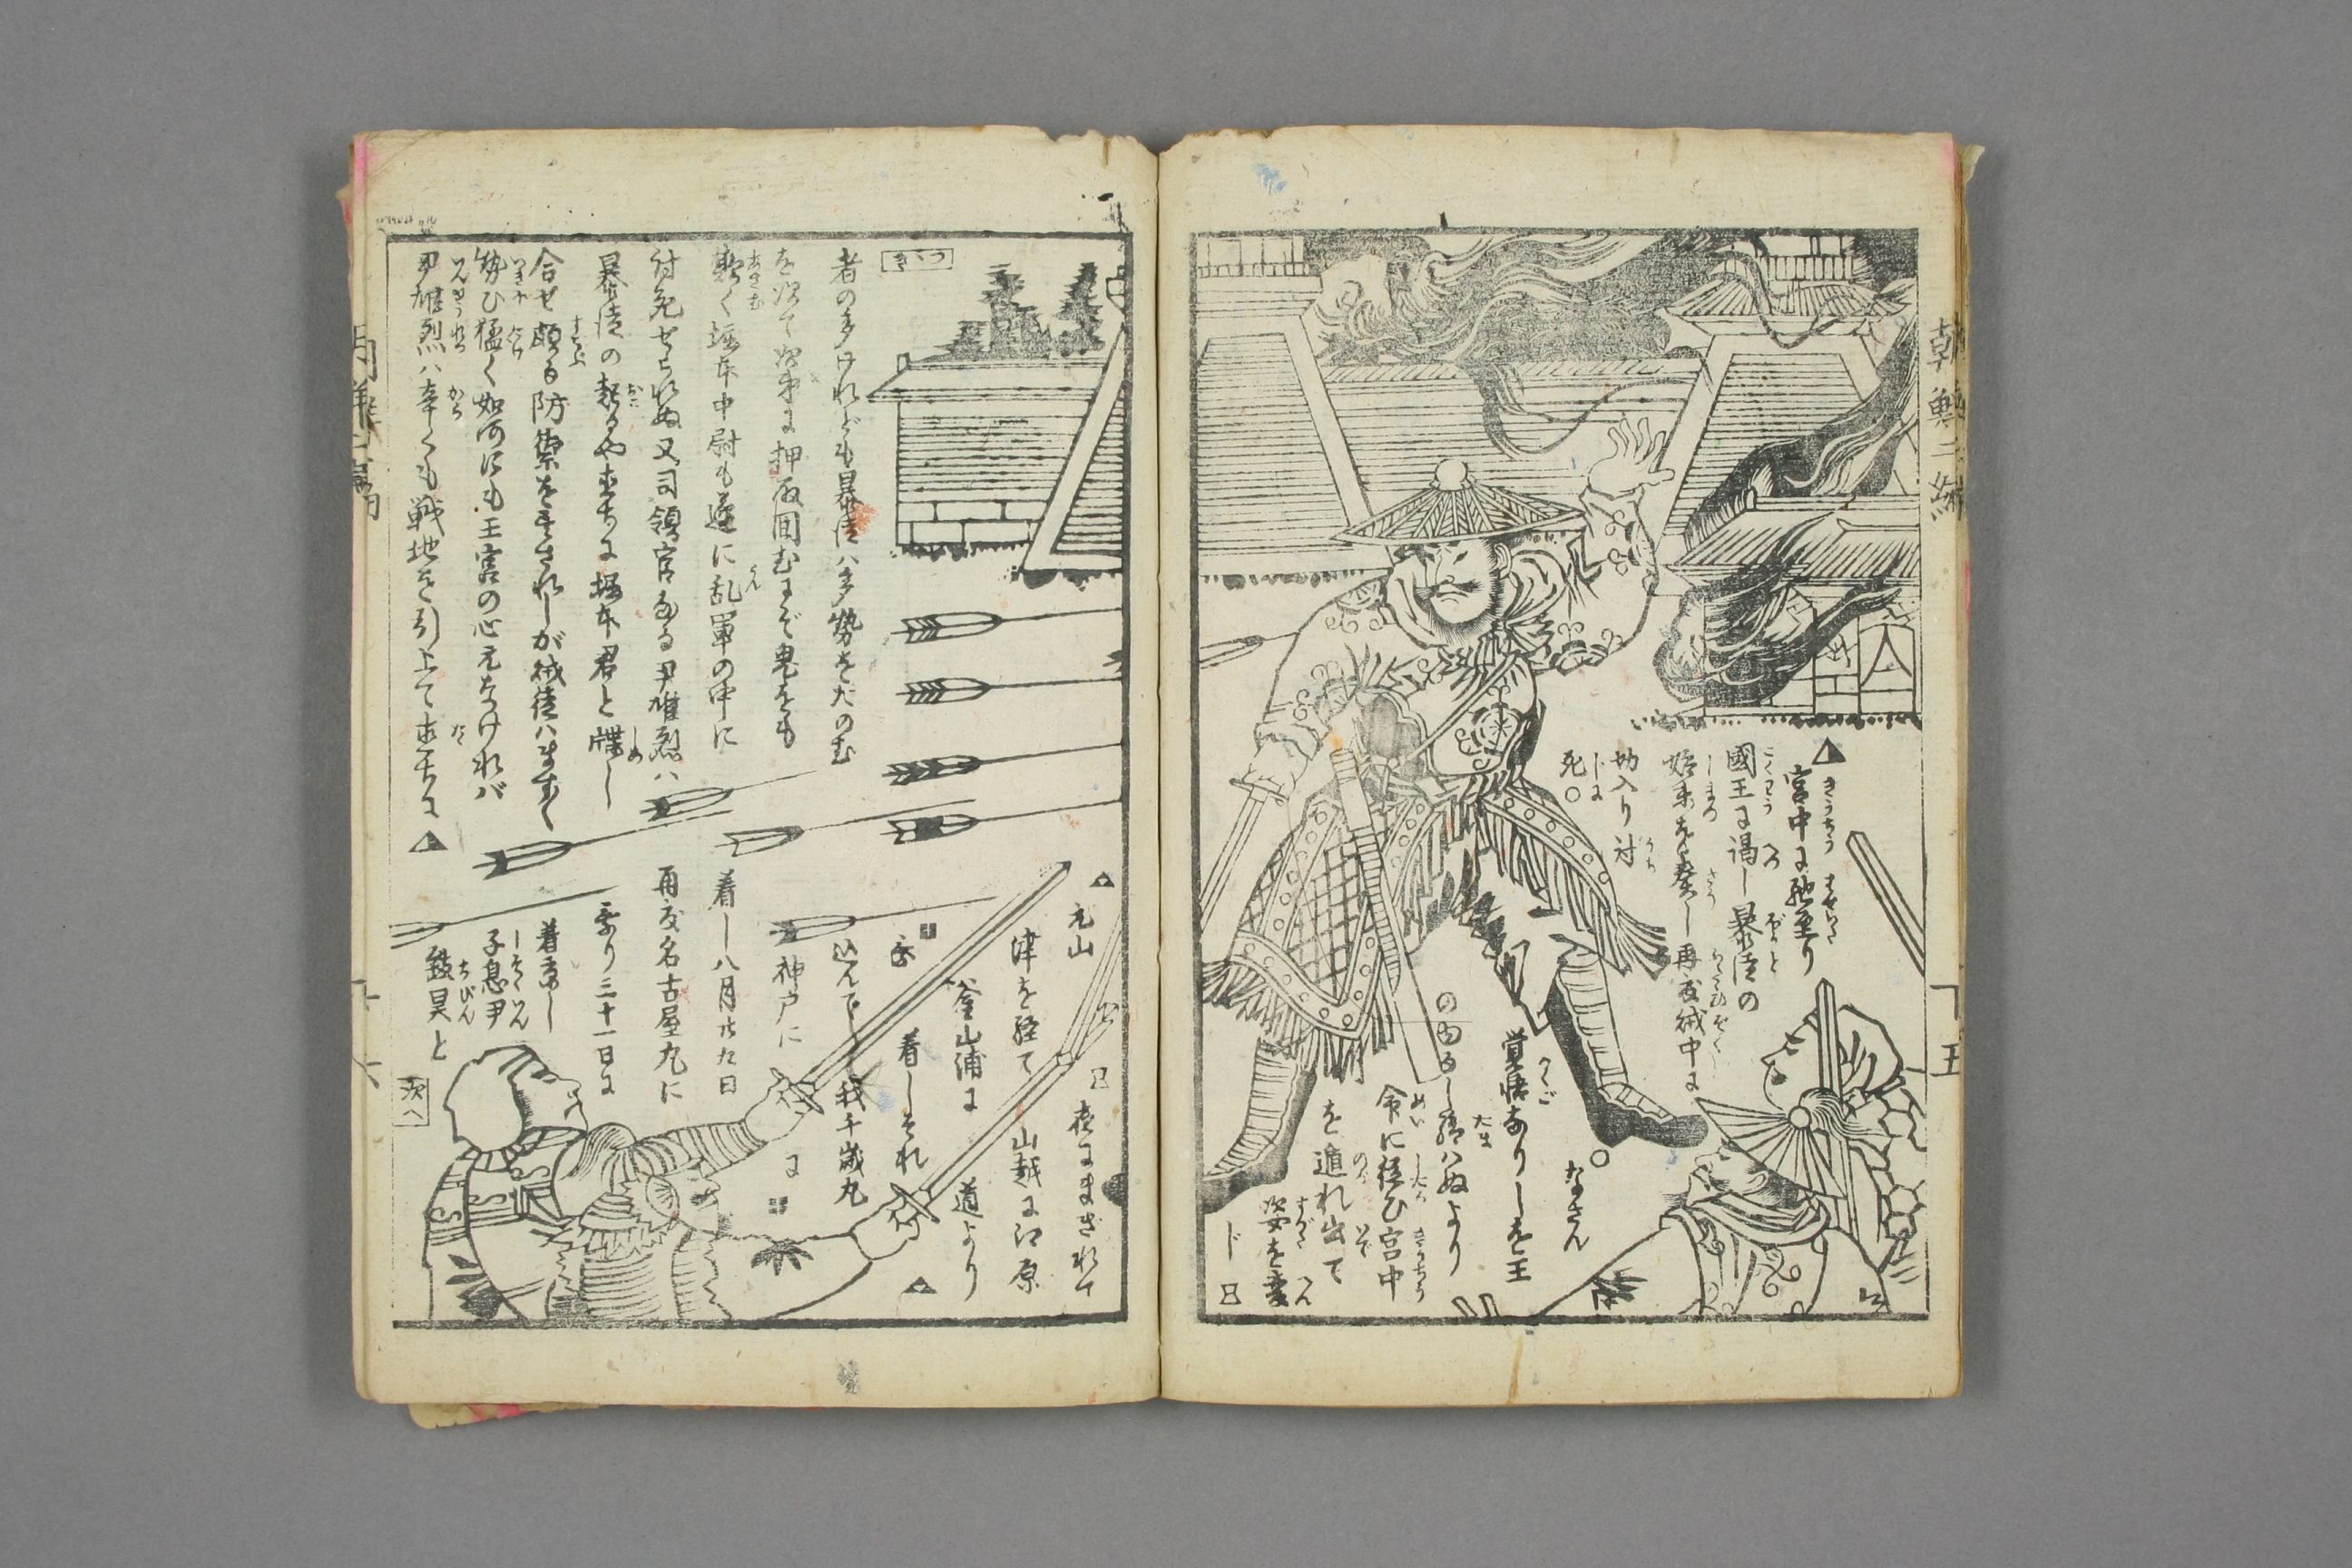 朝鮮二編
下
五
▲宮中に馳至り
國王に謁し暴徒の
始末を奏し再度城中に
切入り討
死○
○なさん
覚悟ありしを王
命に従ひ宮中
を遁れ出て
姿を変
つゞき
者の多けれども暴徒ハ多勢をたのむ
押取囲むまで鬼をも
欺く堀本中尉も遂に乱軍の中に
討死せられぬ又司領官なる尹雄烈ハ
暴徒の起るや直ちに堀本君と牒し
合せ頗る防禦を尽されしが賊徒ハます〱
勢ひ猛く如何にも王宮の心元なけれバ
尹雄烈ハ辛くも戦地を引上て直ちに▲
夜にまぎれて
山越に江原
道より▲
▲元山
津を経て
釜山浦に
着しそれ
我千歳丸
に
神戸に
着し八月廿九日
再度名古屋丸に
乗り三十一日に
着京し
子息尹
致昊と
次へ